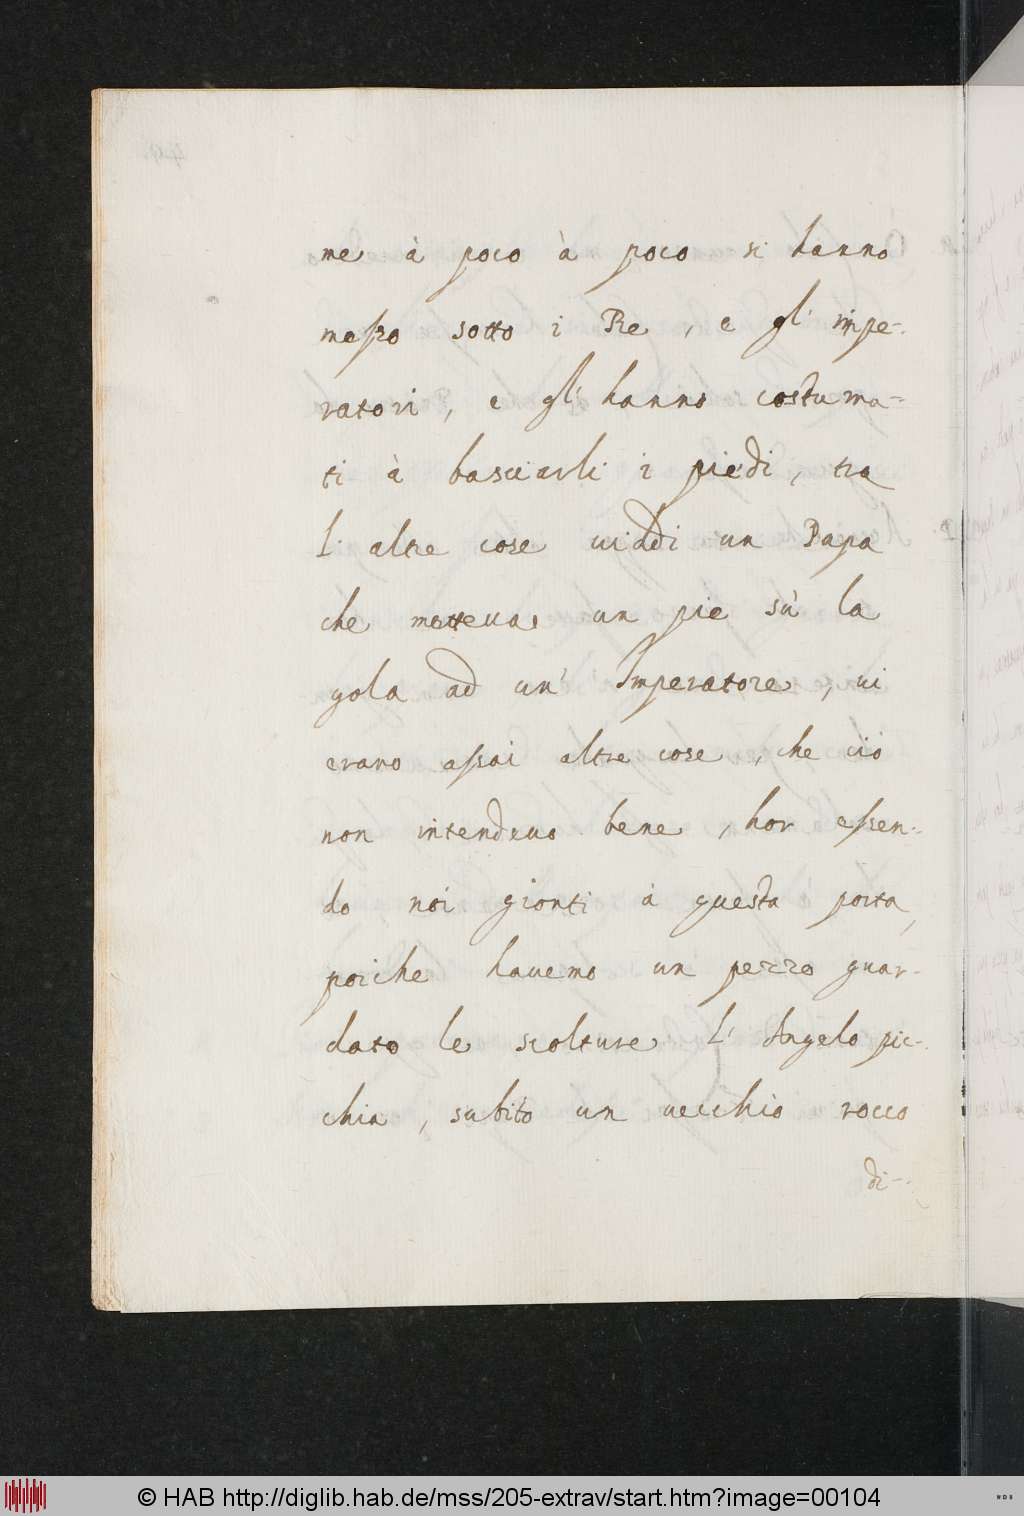 me à poco à poco si hanno
messo sotto i Re, e gl' impe-
ratori, e gl' hanno costuma-
ti à basciarli i piedi, tra
l' altre cose uiddi un Papa
che metteua un pie sù la
gola ad un' Imperatore, ui
erano assai altre cose, che ciò
non intendeuo bene, hor essen-
do noi gionti à questa porta,
poiche hauemo un pezzo guar-
dato le scolture l' Angelo pic-
chia, subito un uecchio rocco
di-
© HAB http://diglib.hab.de/mss/205-extrav/start.htm?image=00104